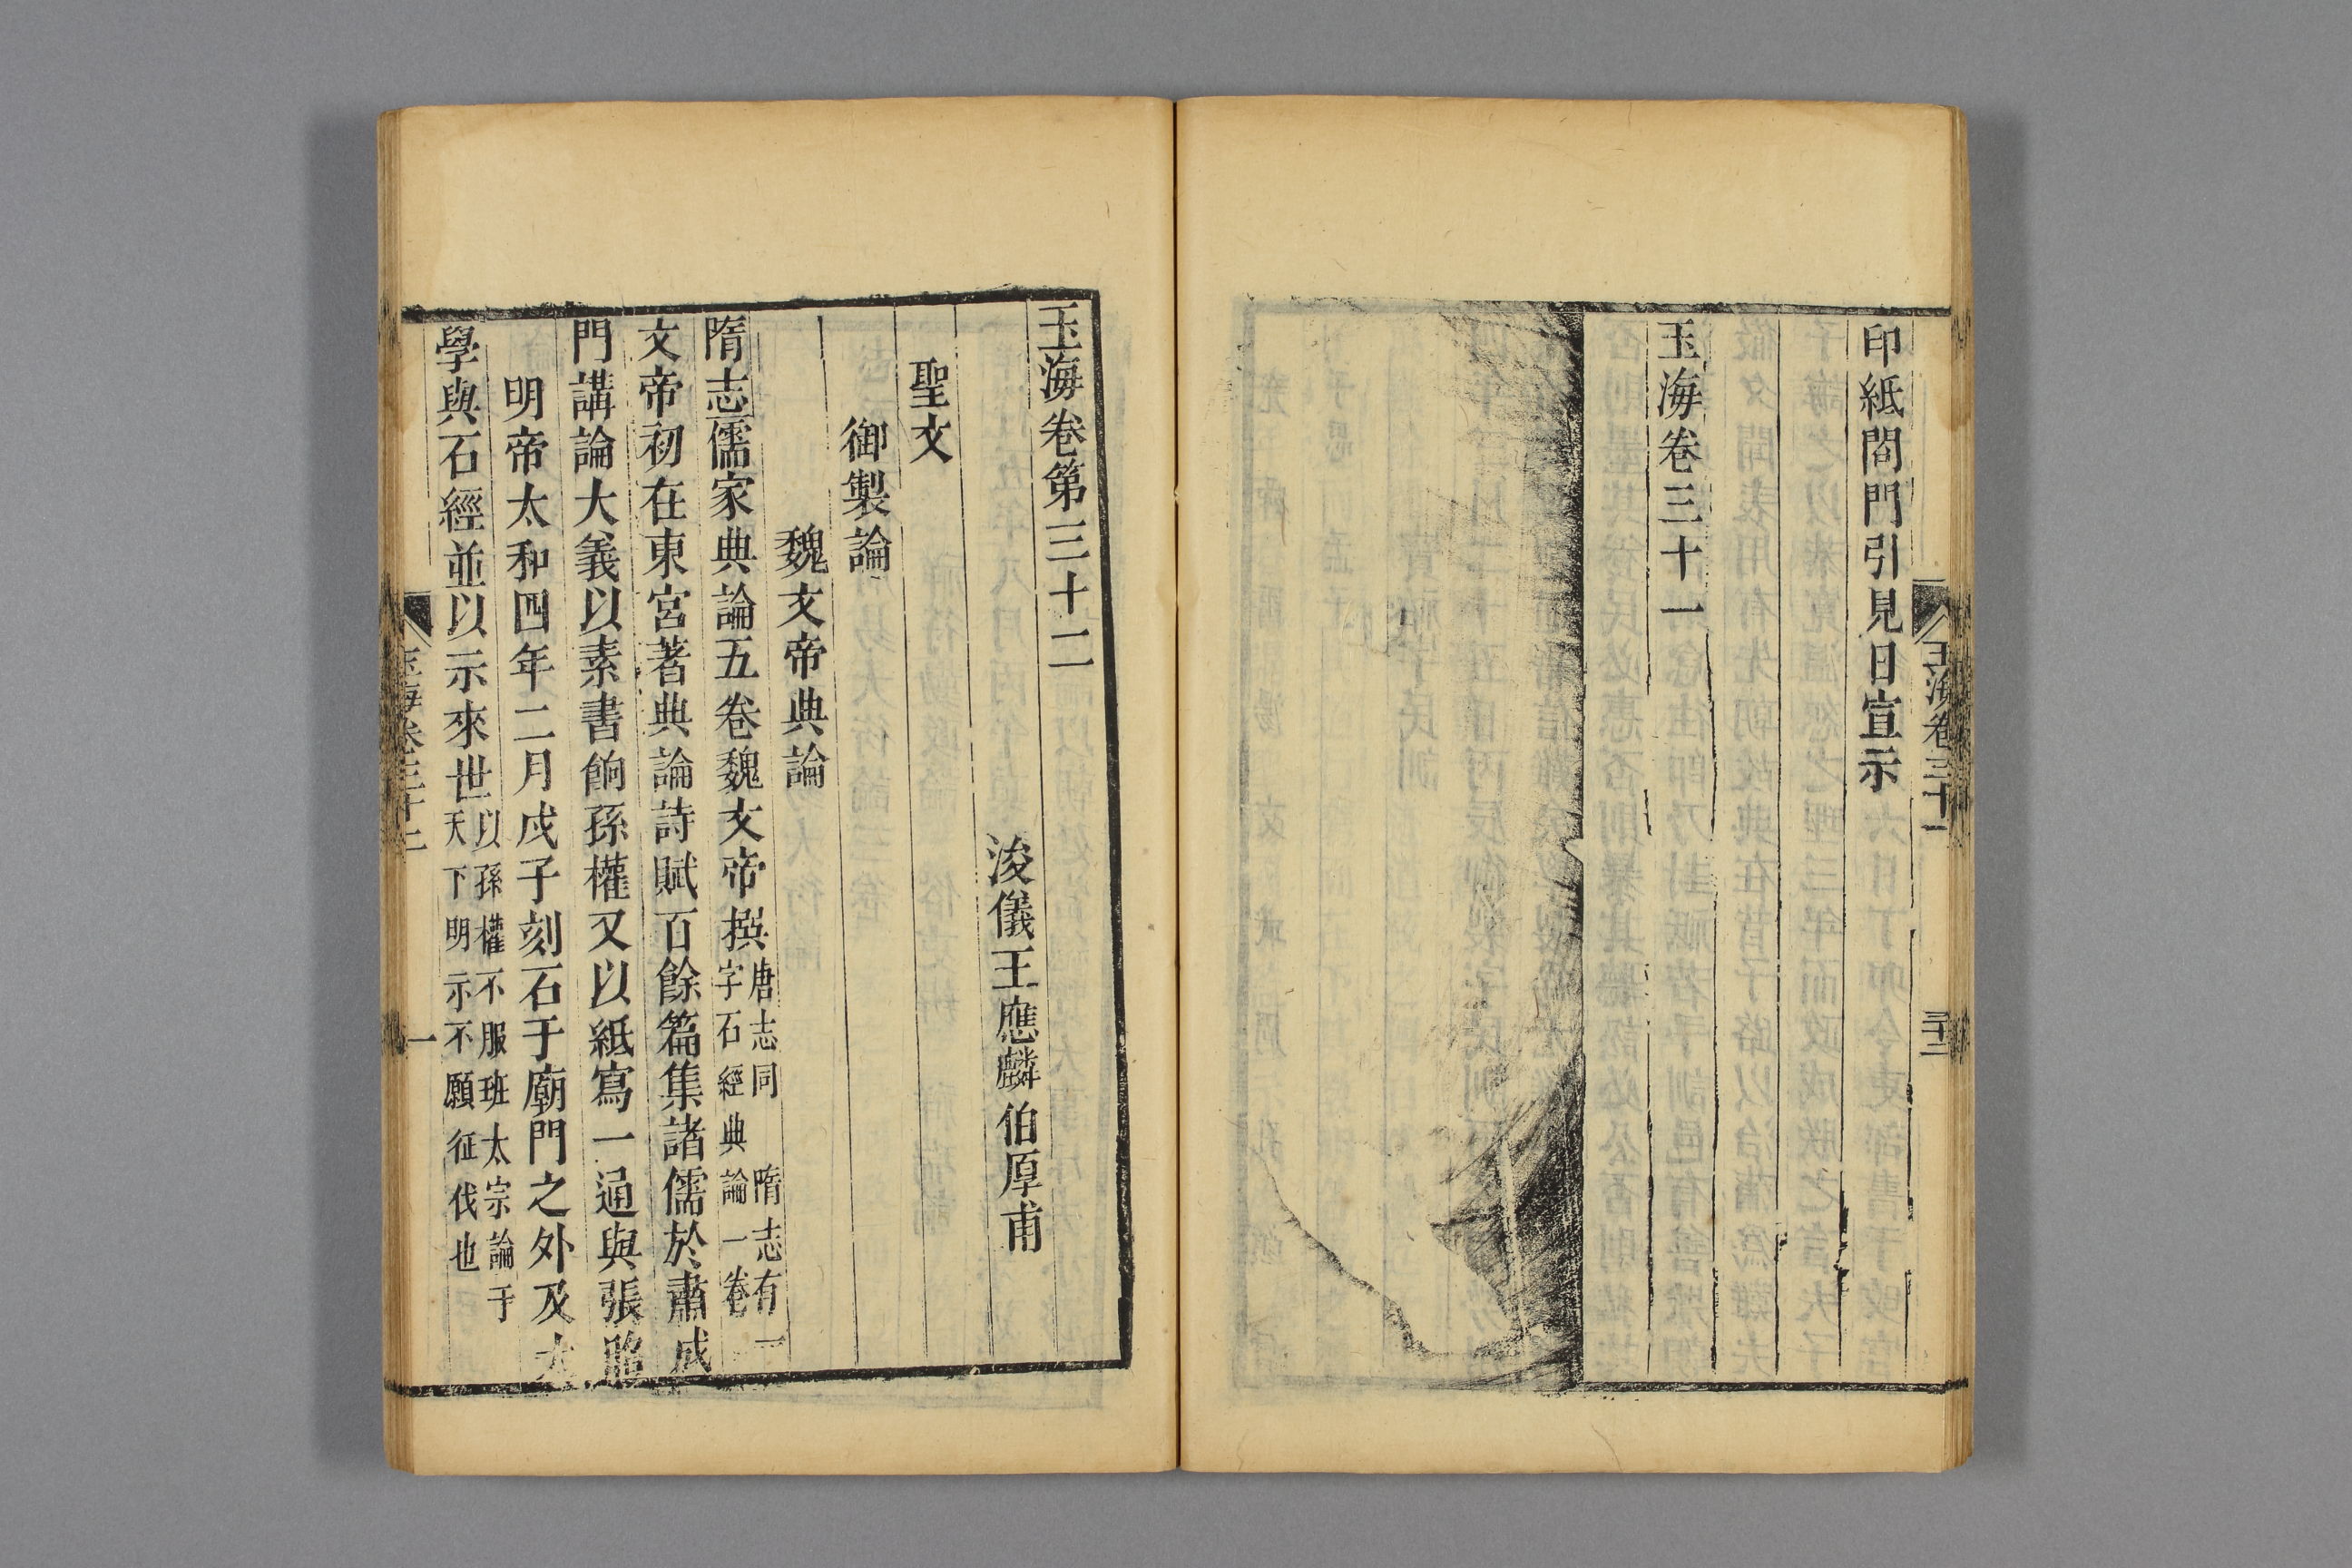 印紙閤門引見日宣示
玉海卷三十一
玉海卷三十一
玉海卷第三十二
浚儀王應麟伯厚甫
聖文
御製論
魏文帝典論
隋志儒家典論五卷魏文帝撰唐志同 隋志有一字石經典論一卷
文帝初在東宮著典論詩賦百餘篇集諸儒於肅成
門講論大義以素書餉孫權又以紙寫一通與張昭
明帝太和四年二月戊子刻石于廟門之外及太
學與石經並以示來世以孫權不服班太宗論于天下明示不願征伐也
玉海卷三十二
一